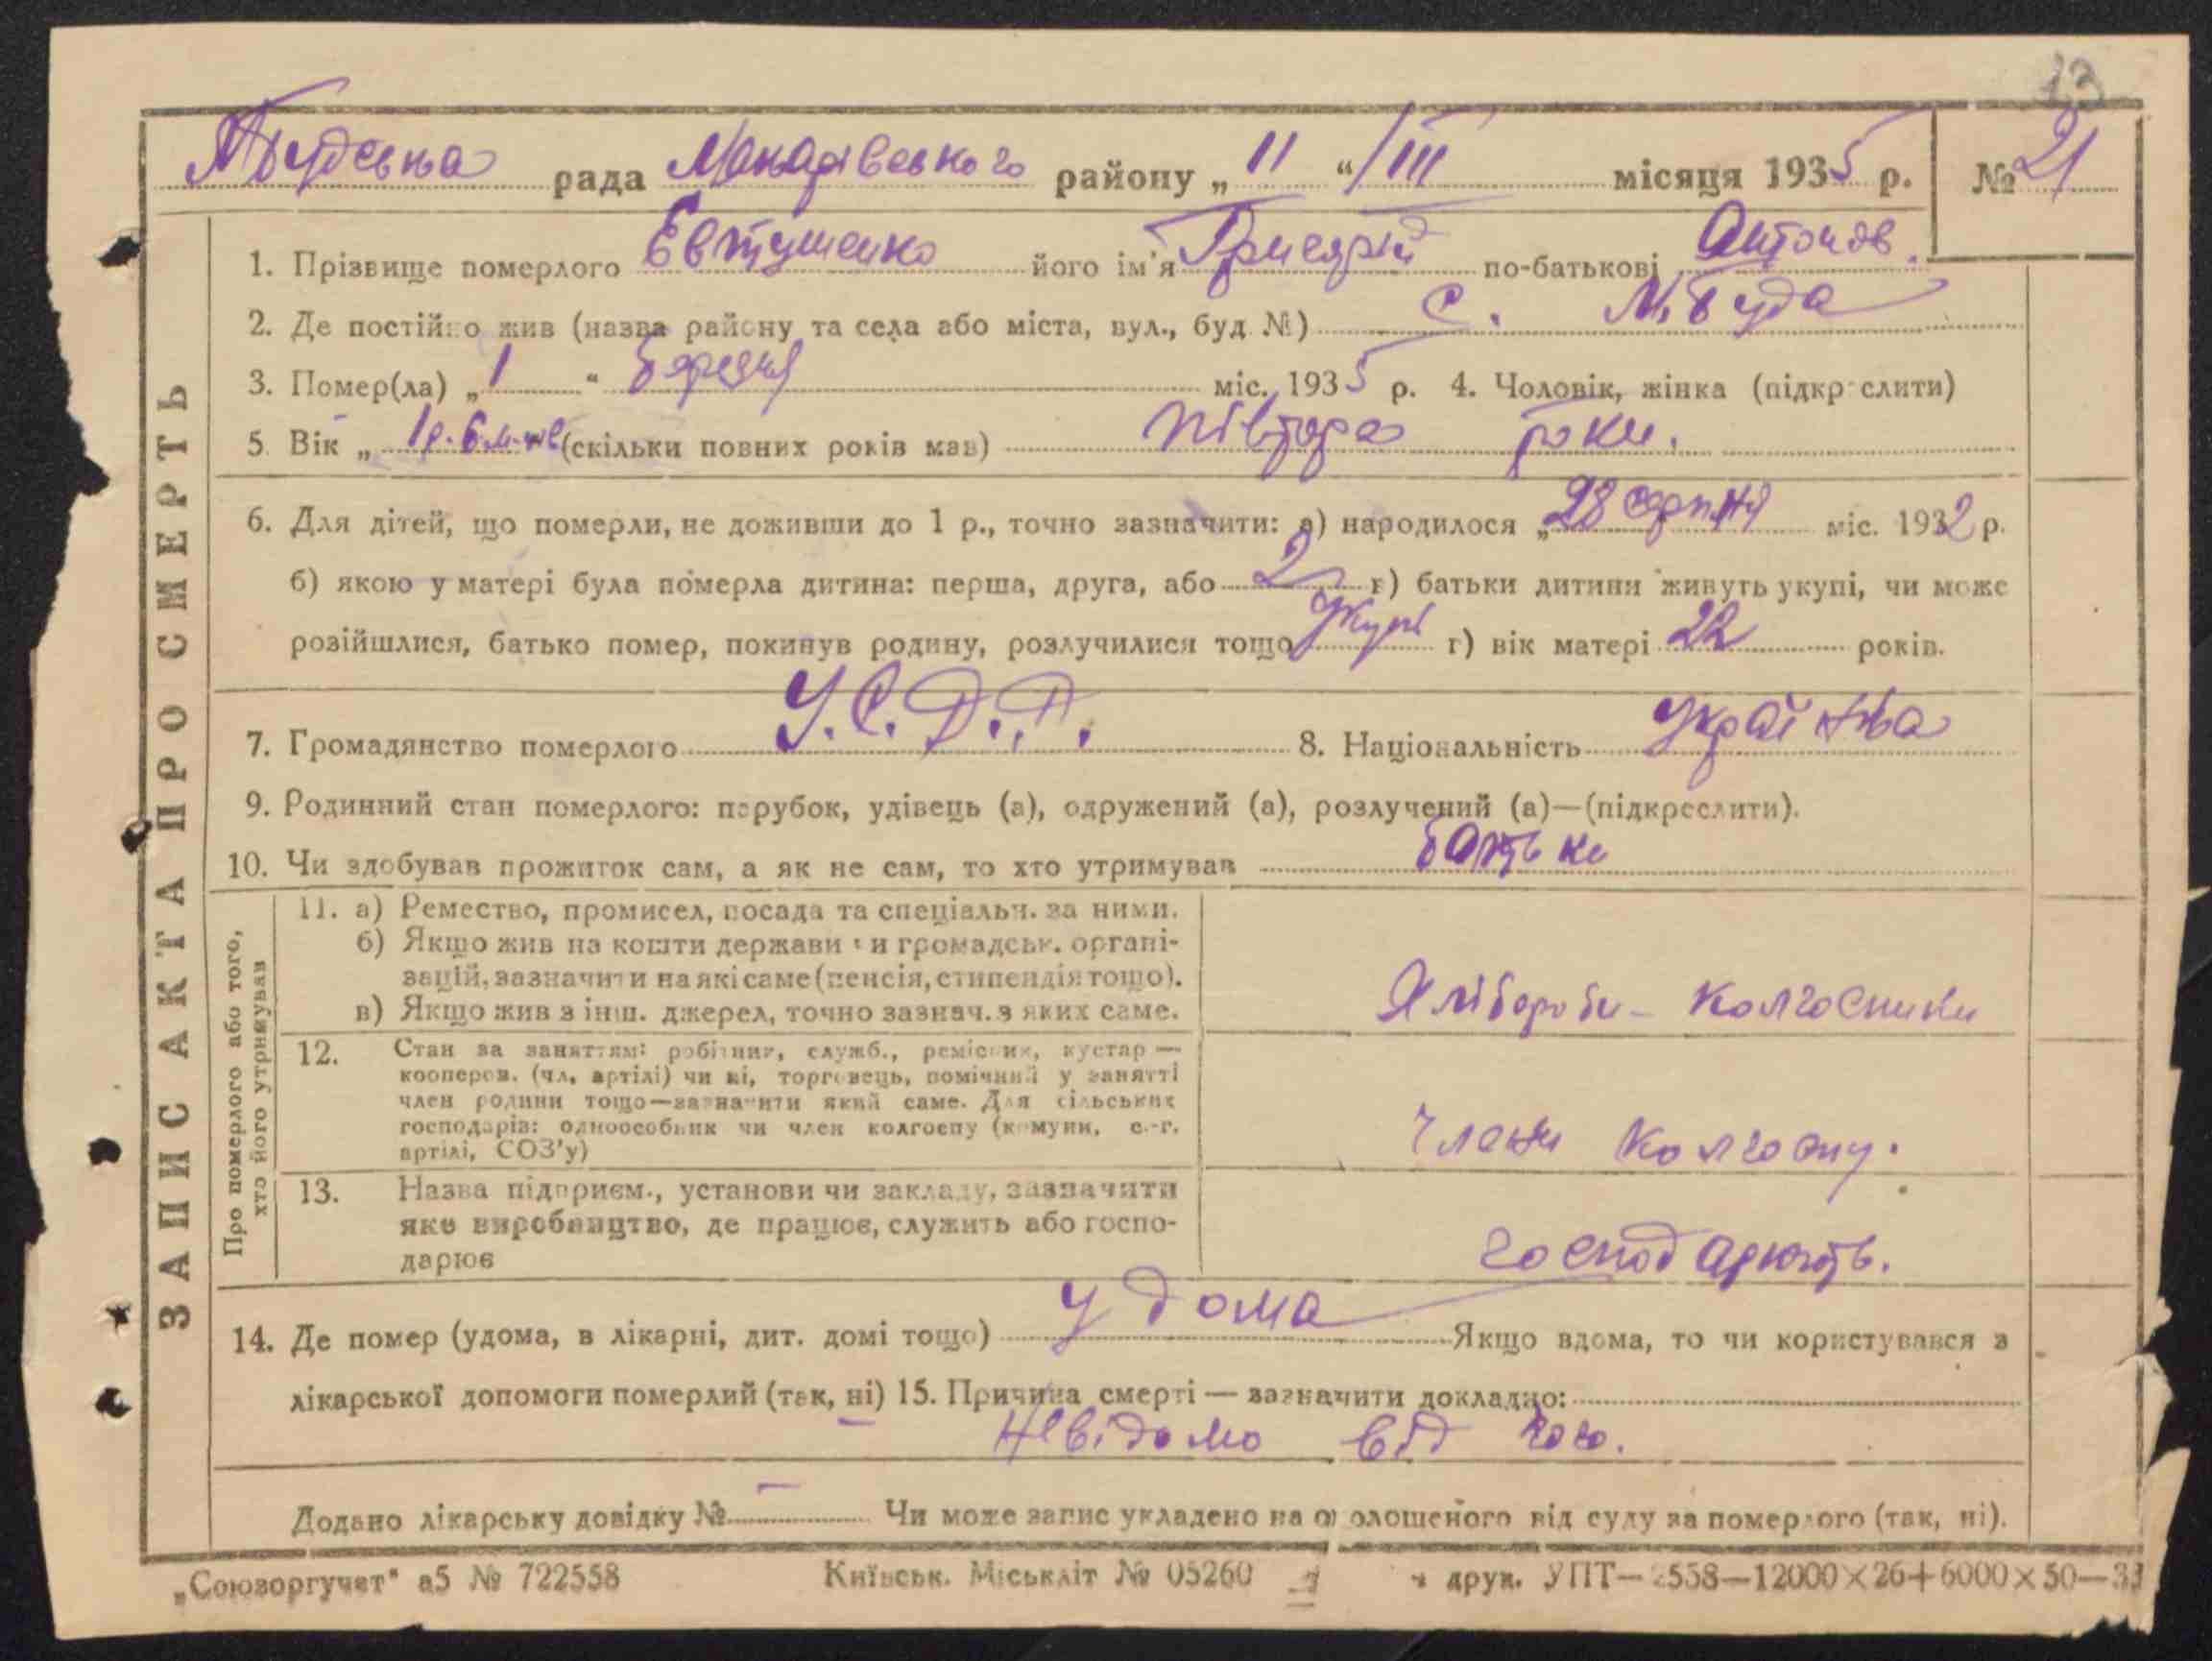 13
М Будська рада Макарівського району „ 11 “ / III місяця 1935 р. № 21
ЗАПИС АКТА ПРО СМЕРТЬ
1. Прізвище померлого Евтушенко його ім'я Григорій по-батькові Антонов.
2. Де постійно жив (назва району та села або міста, вул., буд. №) С. М. Буда
3. Помер(ла) „ 1 “ березня міс. 1935 р. 4. Чоловік, жінка (підкреслити)
5. Вік „ 1 р. 6 м-ців (скільки повних років мав) півтора роки.
6. Для дітей, що померли, не доживши до 1 р., точно зазначити: а) народилося „ 28 серпня міс. 1932 р.
б) якою у матері була померла дитина: перша, друга, або 2 в) батьки дитини живуть укупі, чи може
розійшлися, батько помер, покинув родину, розлучилися тощо укупі г) вік матері 22 років.
7. Громадянство померлого У.С.Р.Р. 8. Національність
9. Родинний стан померлого: парубок, удівець (а), одружений (а), розлучений (а)—(підкреслити).
10. Чи здобував прожиток сам, а як не сам, то хто утримував батьки
Про померлого або того,
хто його утримував
11. а) Ремество, промисел, посада та спеціальн. за ними.
б) Якщо жив на кошти держави чи громадськ. органі-
зацій, зазначити на які саме (пенсія, стипендія тощо).
в) Якщо жив з інш. джерел, точно зазнач. з яких саме.
Хлібороби – колгоспники
12. Стан за заняттям: робітник, служб., ремісник, кустар —
кооперов. (чл. артілі) чи ні, торговець, помічний у занятті
член родини тощо—зазначити який саме. Для сільських
господарів: одноособник чи член колгоспу (комуни, с.-г.
артілі, СОЗ'у)
Члени колгоспу.
13. Назва підприєм., установи чи закладу, зазначити
яке виробництво, де працює, служить або госпо-
дарює
господарюють.
14. Де помер (удома, в лікарні, дит. домі тощо) у дома Якщо вдома, то чи користувався з
лікарської допомоги померлий (так, ні) 15. Причина смерті — зазначити докладно:
невідомо від чого.
Додано лікарську довідку № — Чи може запис укладено на оголошеного від суду за померлого (так, ні).
„Союзоргучет“ а5 № 722558 Київськ. Міськліт № 05260 друк. УПТ—2558—12000×26+6000×50—33